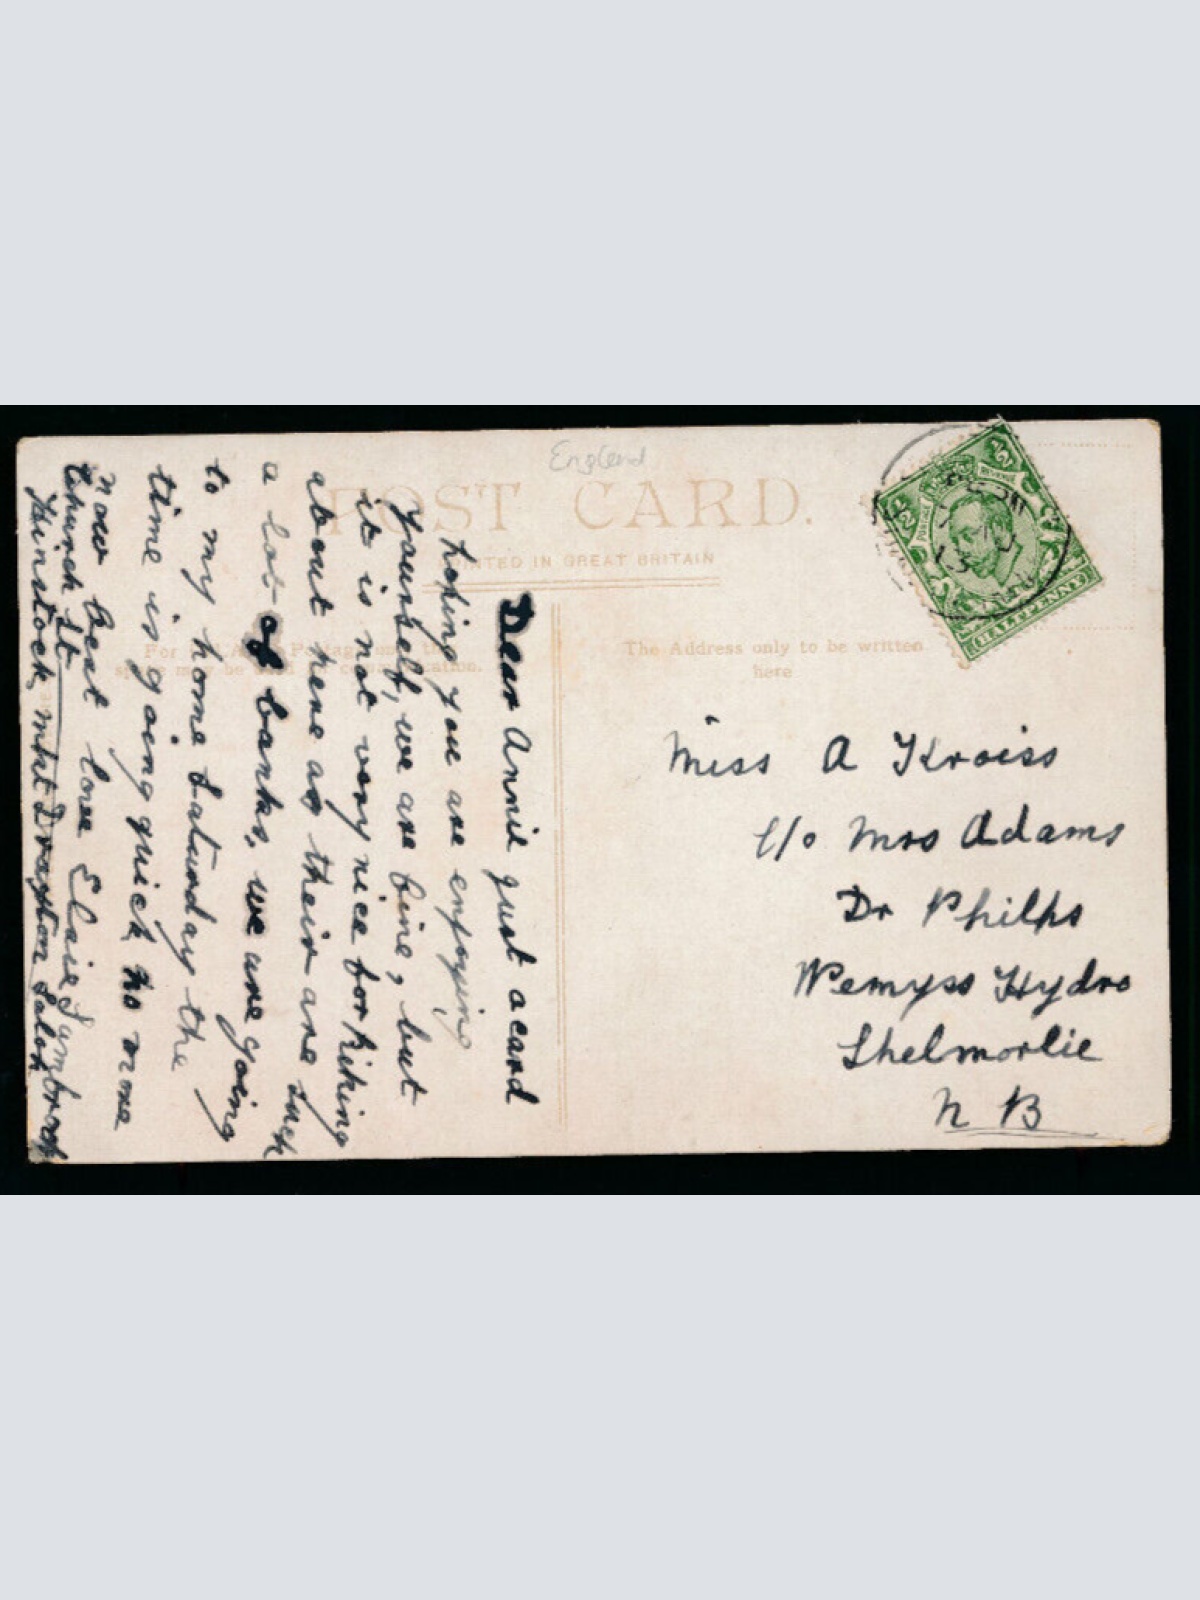 England
POST CARD.
PRINTED IN GREAT BRITAIN
The Address only to be written
here
POSTAGE REVENUE
1/2 1/2
HALFPENNY
Dear Annie just a card
hoping you are enjoying
yourself, we are fine, but
it is not very nice for hiking
about here as their are such
a lot of banks, we are going
to my home Saturday the
time is going quick no more
now best love Elsie
Church St
Hinstock Mkt Drayton Salop
Miss A Kroiss
c/o Mrs Adams
Dr Philps
Wemyss Hydro
Skelmorlie
N B